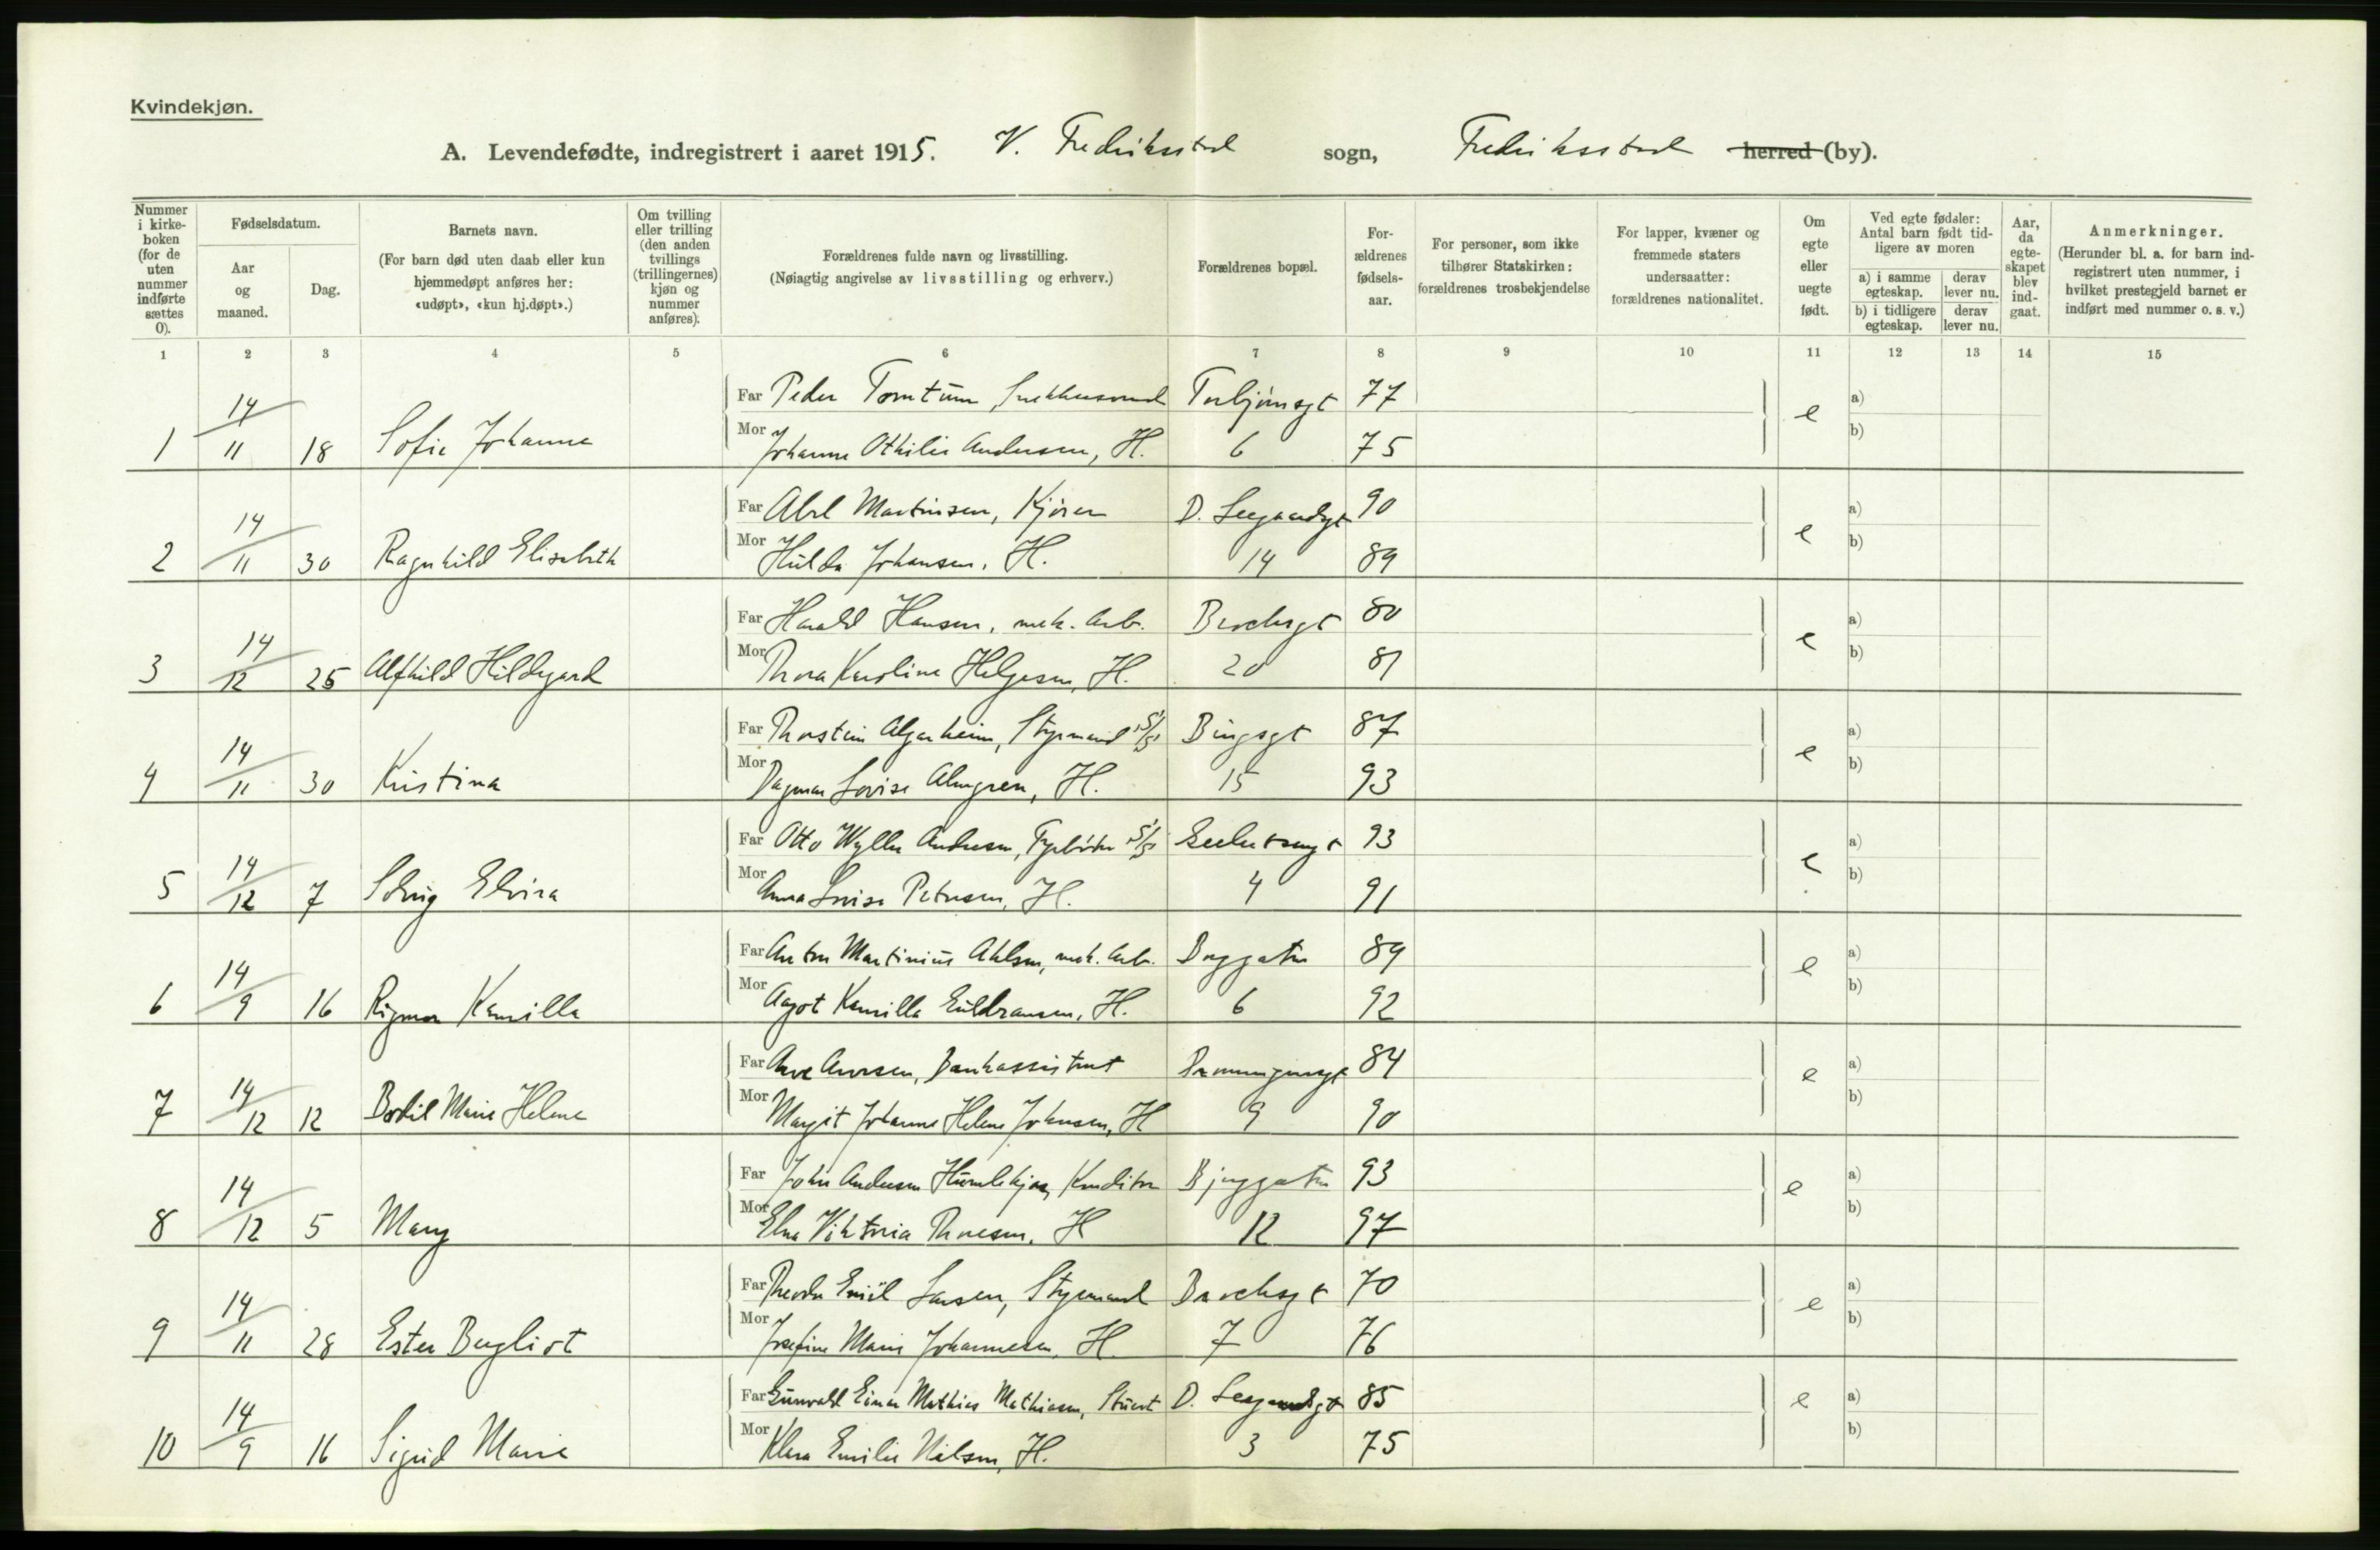 Kvindekjøn.
A. Levendefødte, indregistrert i aaret 1915. V. Fredriksstad sogn, Fredriksstad herred (by).
Nummer i kirkeboken (for de uten nummer indførte sættes 0).
Fødselsdatum.
Aar og maaned.
Dag.
Barnets navn.
(For barn død uten daab eller kun hjemmedøpt anføres her: «udøpt», «kun hj.døpt».)
Om tvilling eller trilling (den anden tvillings (trillingernes) kjøn og nummer anføres).
Forældrenes fulde navn og livsstilling.
(Nøiagtig angivelse av livsstilling og erhverv.)
Forældrenes bopæl.
For-ældrenes fødsels-aar.
For personer, som ikke tilhører Statskirken: forældrenes trosbekjendelse
For lapper, kvæner og fremmede staters undersaatter: forældrenes nationalitet.
Om egte eller uegte født.
Ved egte fødsler: Antal barn født tidligere av moren
a) i samme egteskap. derav lever nu.
b) i tidligere egteskap. derav lever nu.
Aar, da egteskapet blev indgaat.
Anmerkninger.
(Herunder bl. a. for barn indregistrert uten nummer, i hvilket prestegjeld barnet er indført med nummer o. s. v.)
1 2 3 4 5 6 7 8 9 10 11 12 13 14 15
Far Peder Tomtum, Torbjørnsgt 77 a)
1 14/11 18 Sofie Johanne Mor Johanne Othilie Andersen, H. 6 75 e b)
Far Abel Martinsen, Kjører D. 90 a)
2 14/11 30 Ragnhild Elisabeth Mor Hulda Johansen, H. 14 89 e b)
Far Harald Hansen, mek. Arb. Brochsgt 80 a)
3 14/12 25 Alfhild Hildegard Mor Thora Karoline Helgesen, H. 20 81 e b)
Far Thorstein Algarheim, Styrmand S/S Bingsgt 87 a)
4 14/11 30 Kristina Mor Dagmar Lovise Almgren, H. 15 93 e b)
Far Otto Wyller Andresen, Fyrbøter S/S 93 a)
5 14/12 7 Solveig Elvira Mor Anna Lovise Petersen, H. 4 91 e b)
Far Anton Martinius Ahlsen, mek. Arb. Byggaten 89 a)
6 14/9 16 Rigmor Kamilla Mor Aagot Kamilla Guldransen, H. 6 92 e b)
Far Arve Arvesen, Bankassistent 84 a)
7 14/12 12 Bodil Marie Helene Mor Margit Johanne Helene Johnsen, H 9 90 e b)
Far John Andersen Humlekjær, Konditor Bjeggaten 93 a)
8 14/12 5 Mary Mor Elna Viktoria Thoresen, H 12 97 e b)
Far Theodor Emil Larsen, Styrmand Brochsgt 70 a)
9 14/11 28 Ester Bergliot Mor Josefine Marie Johannesen, H. 7 76 e b)
Far Gunvald Einar Mathias Mathiasen, Stuert D. 85 a)
10 14/9 16 Sigrid Marie Mor Klara Emilie Nilsen, H. 3 75 e b)